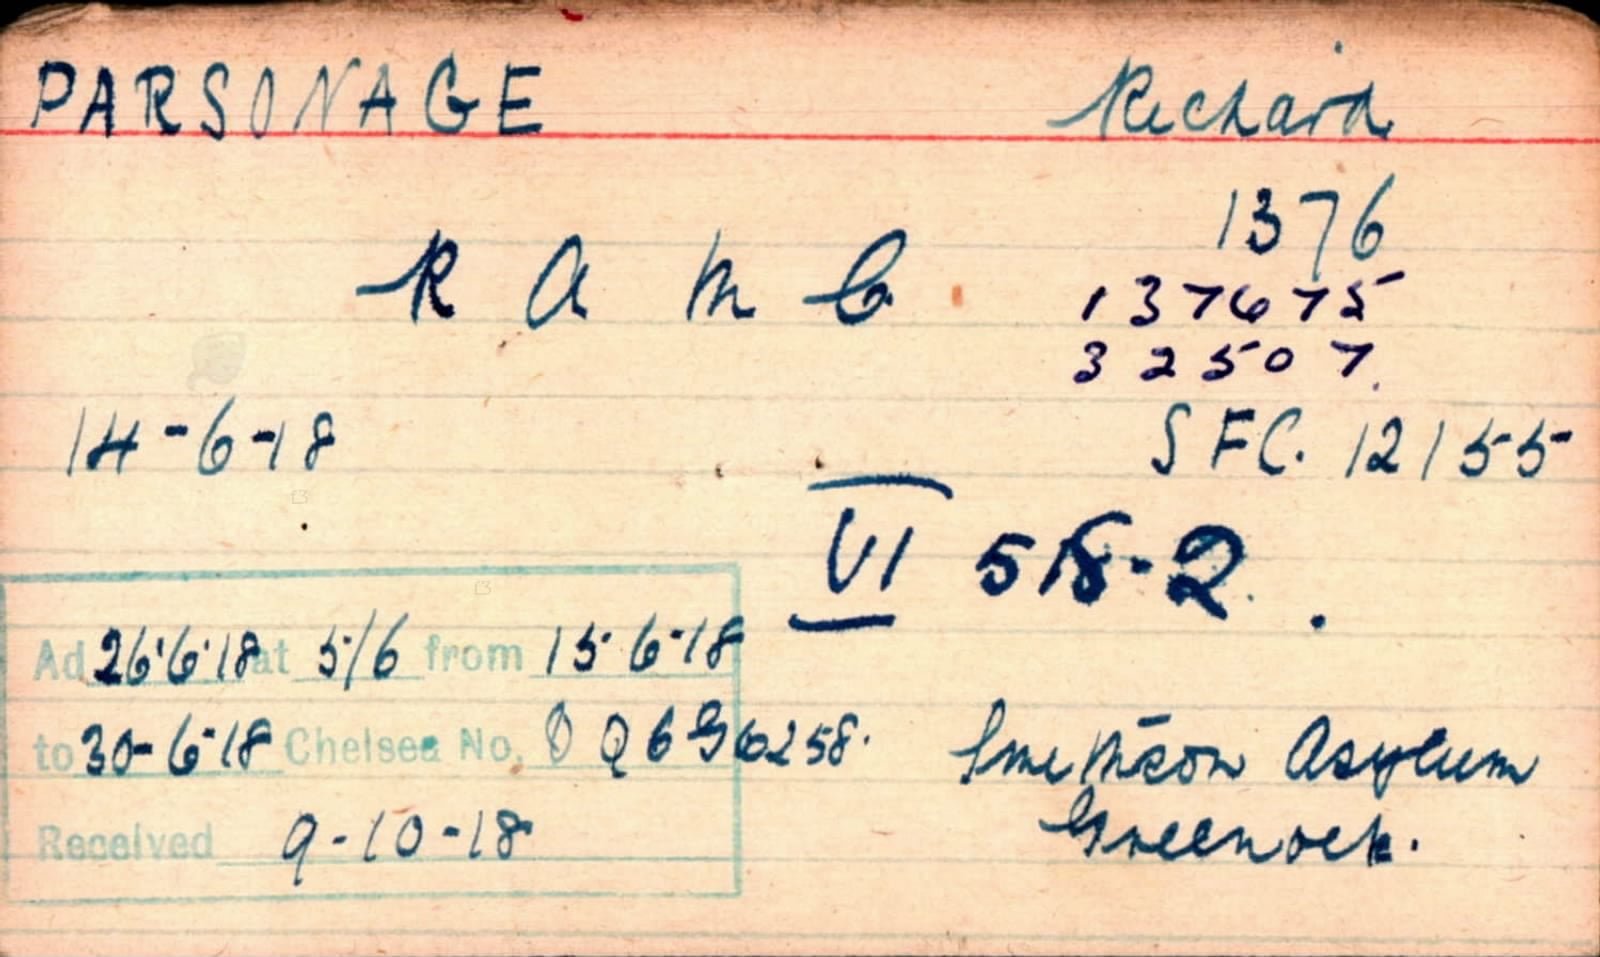 PARSONAGE Richard
1376
R A M C.
137675
32507.
14-6-18
SFC. 12155
VI 518-2.
Ad 26.6.18 at 5/6 from 15-6-18
to 30-6-18 Chelsea No. D Q 6 G 6258.
Smithson Asylum
Greenock.
Received 9-10-18